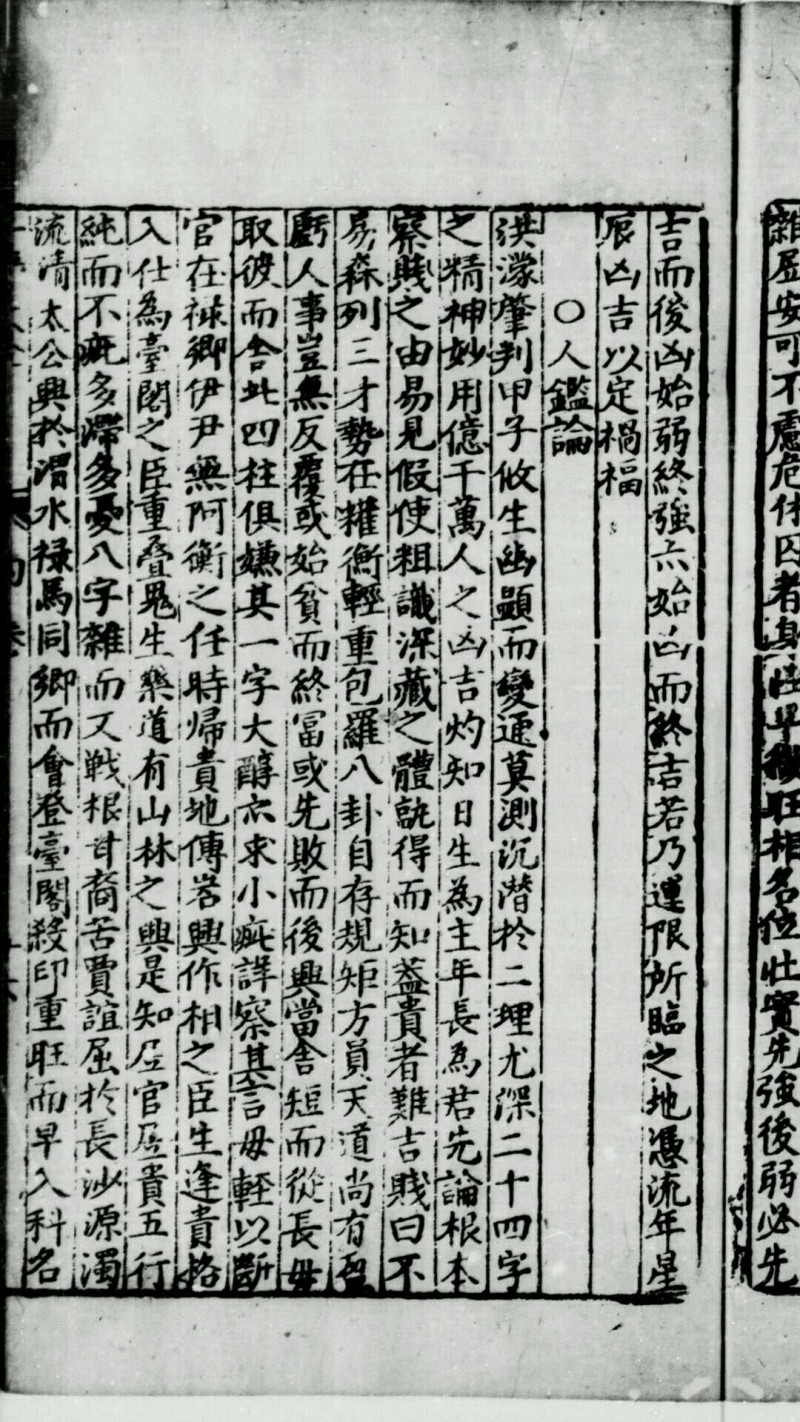 雜居安可不慮危休囚者身旺早發旺相名位壯實先強後弱必先
吉而後凶始弱終強亦始凶而終吉若乃運限所臨之地憑流年星
辰凶吉以定禍福
○人鑑論
洪濛肇判甲子攸生幽顯而變通莫測沉潛於二理尤深二十四字
之精神妙用億千萬人之凶吉灼知日生為主年長為君先論根本
察賤之由易見假使粗識深藏之體訛得而知葢貴者難吉賤曰不
易森列三才勢在權衡輕重包羅八卦自存規矩方員天道尚有盈
虧人事豈無反覆或始貧而終冨或先敗而後興當舍短而從長毋
取彼而舍此四柱俱嫌其一字大醇亦求小疵詳察其言毋輕以斷
官在祿鄉伊尹無阿衡之任時歸貴地傅岩興作相之臣生逢貴格
入仕為臺閣之臣重疊鬼生樂道有山林之興是知居官居貴五行
純而不疵多滯多憂八字雜而又戦根甘裔苦賈誼屈於長沙源濁
流清太公興於渭水禄馬同鄉而會登臺閣殺印重旺而早入科名